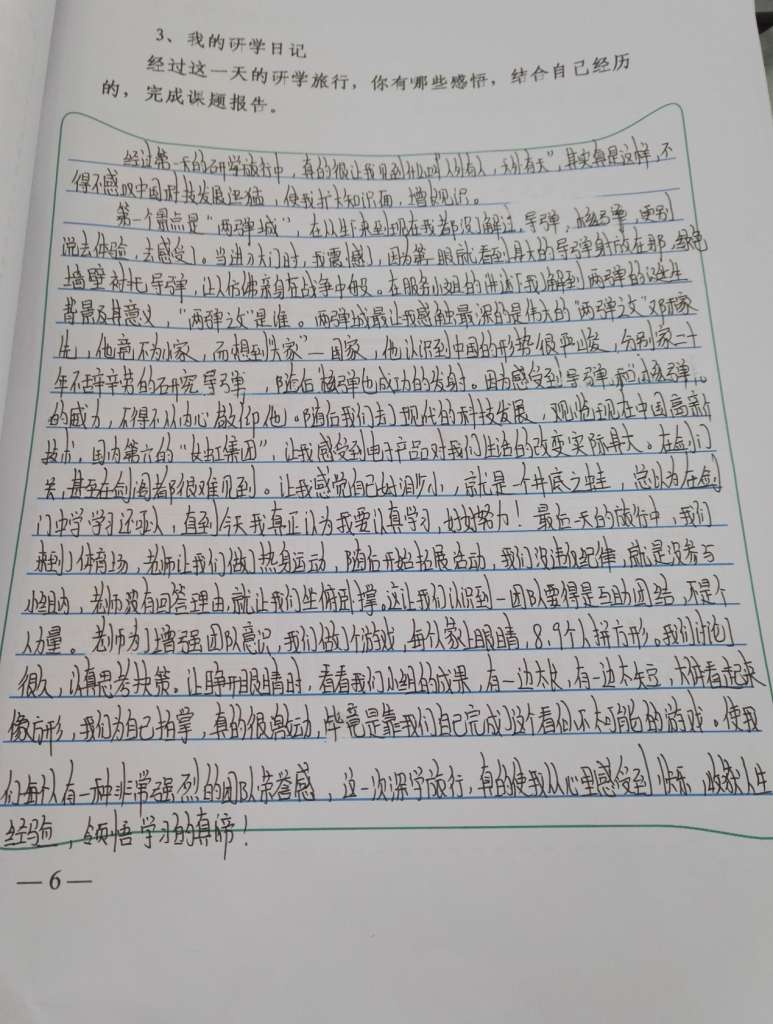 3、我的研学日记
经过这一天的研学旅行，你有哪些感悟，结合自己经历
的，完成课题报告。
经过第一天的研学旅行中，真的很让我见到什么叫"人外有人，天外有天"，其实真是这样，不
得不感叹中国科技发展迅猛，使我扩大知识面，增长见识。
第一个景点是"两弹城"，在从生下来到现在我都没了解过，导弹，核弹，更别
说去体验，去感受了。当进入大门时，我震憾了，因为第一眼就看到具大的导弹身放在那，绿色
墙壁衬托导弹，让人仿佛亲身在战争中般。在服务小姐的讲述下我了解到两弹的诞生
背景及其意义，"两弹之父"是谁。两弹城最让我感触最深的是伟大的"两弹之父"邓稼
先，他竟不为小家，而想到"大家"—国家，他认识到中国的形势很严峻，分别家二十
年不辞辛劳的研究导弹，随后核弹也成功的发射。因为感受到导弹和核弹
的威力，不得不从内心敬仰他。随后我们去了现代的科技发展，观览现在中国高新
技术，国内第六的"长虹集团"，让我感受到电子产品对我们生活的改变实际具大。在剑门
关，甚至在剑阁者都很难见到。让我感觉自己如此渺小，就是一个井底之蛙，总以为在剑
门中学学习还可以，直到今天我真正认为我要认真学习，好好努力！最后一天的旅行中，我们
来到了体育场，老师让我们做了热身运动，随后开始拓展活动，我们没违反纪律，就是没参与
小组内，老师没有回答理由，就让我们坐俯卧撑。这让我们认识到一团队要得是互助团结，不是个
人力量。老师为了增强团队意识，我们做了个游戏，每个人蒙上眼睛，8.9个人拼方形。我们讨论了
很久，认真思考决策。让睁开眼睛时，看看我们小组的成果，有一边太长，有一边太短，大体看起来
像方形，我们为自己拍掌，真的很激动，毕竟是靠我们自己完成了这个看似不大可能的游戏。使我
们每个人有一种非常强烈的团队荣誉感，这一次深学旅行，真的使我从心里感受到快乐，收获人生
经验，领悟学习的真谛！
—6—